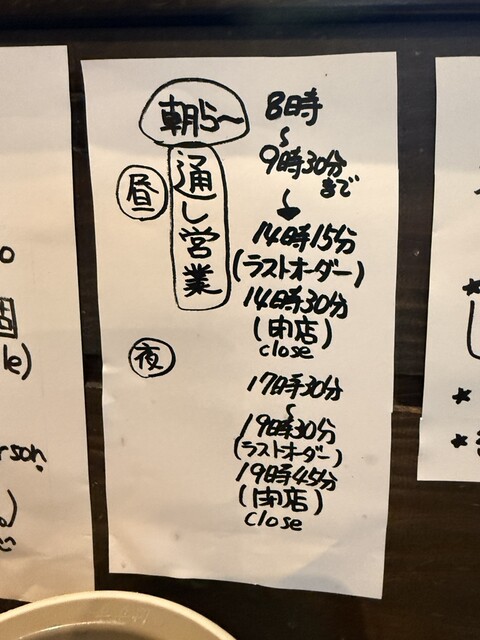 朝ら〜
昼
通し営業
8時
〜
9時30分
まで
14時15分
(ラストオーダー)
14時30分
(閉店)
close
夜
17時30分
〜
19時30分
(ラストオーダー)
19時45分
(閉店)
close
le)
erson